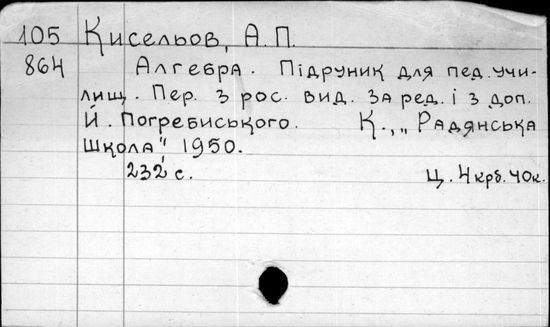 105 Кисельов, А.П.
864 Алгебра. Підруник для пед. учи-
лищ. Пер. з рос. вид. За ред. і з доп.
Й. Погребиського. К., „Радянська
школа" 1950.
232 с. Ц. 4крб. 40к.